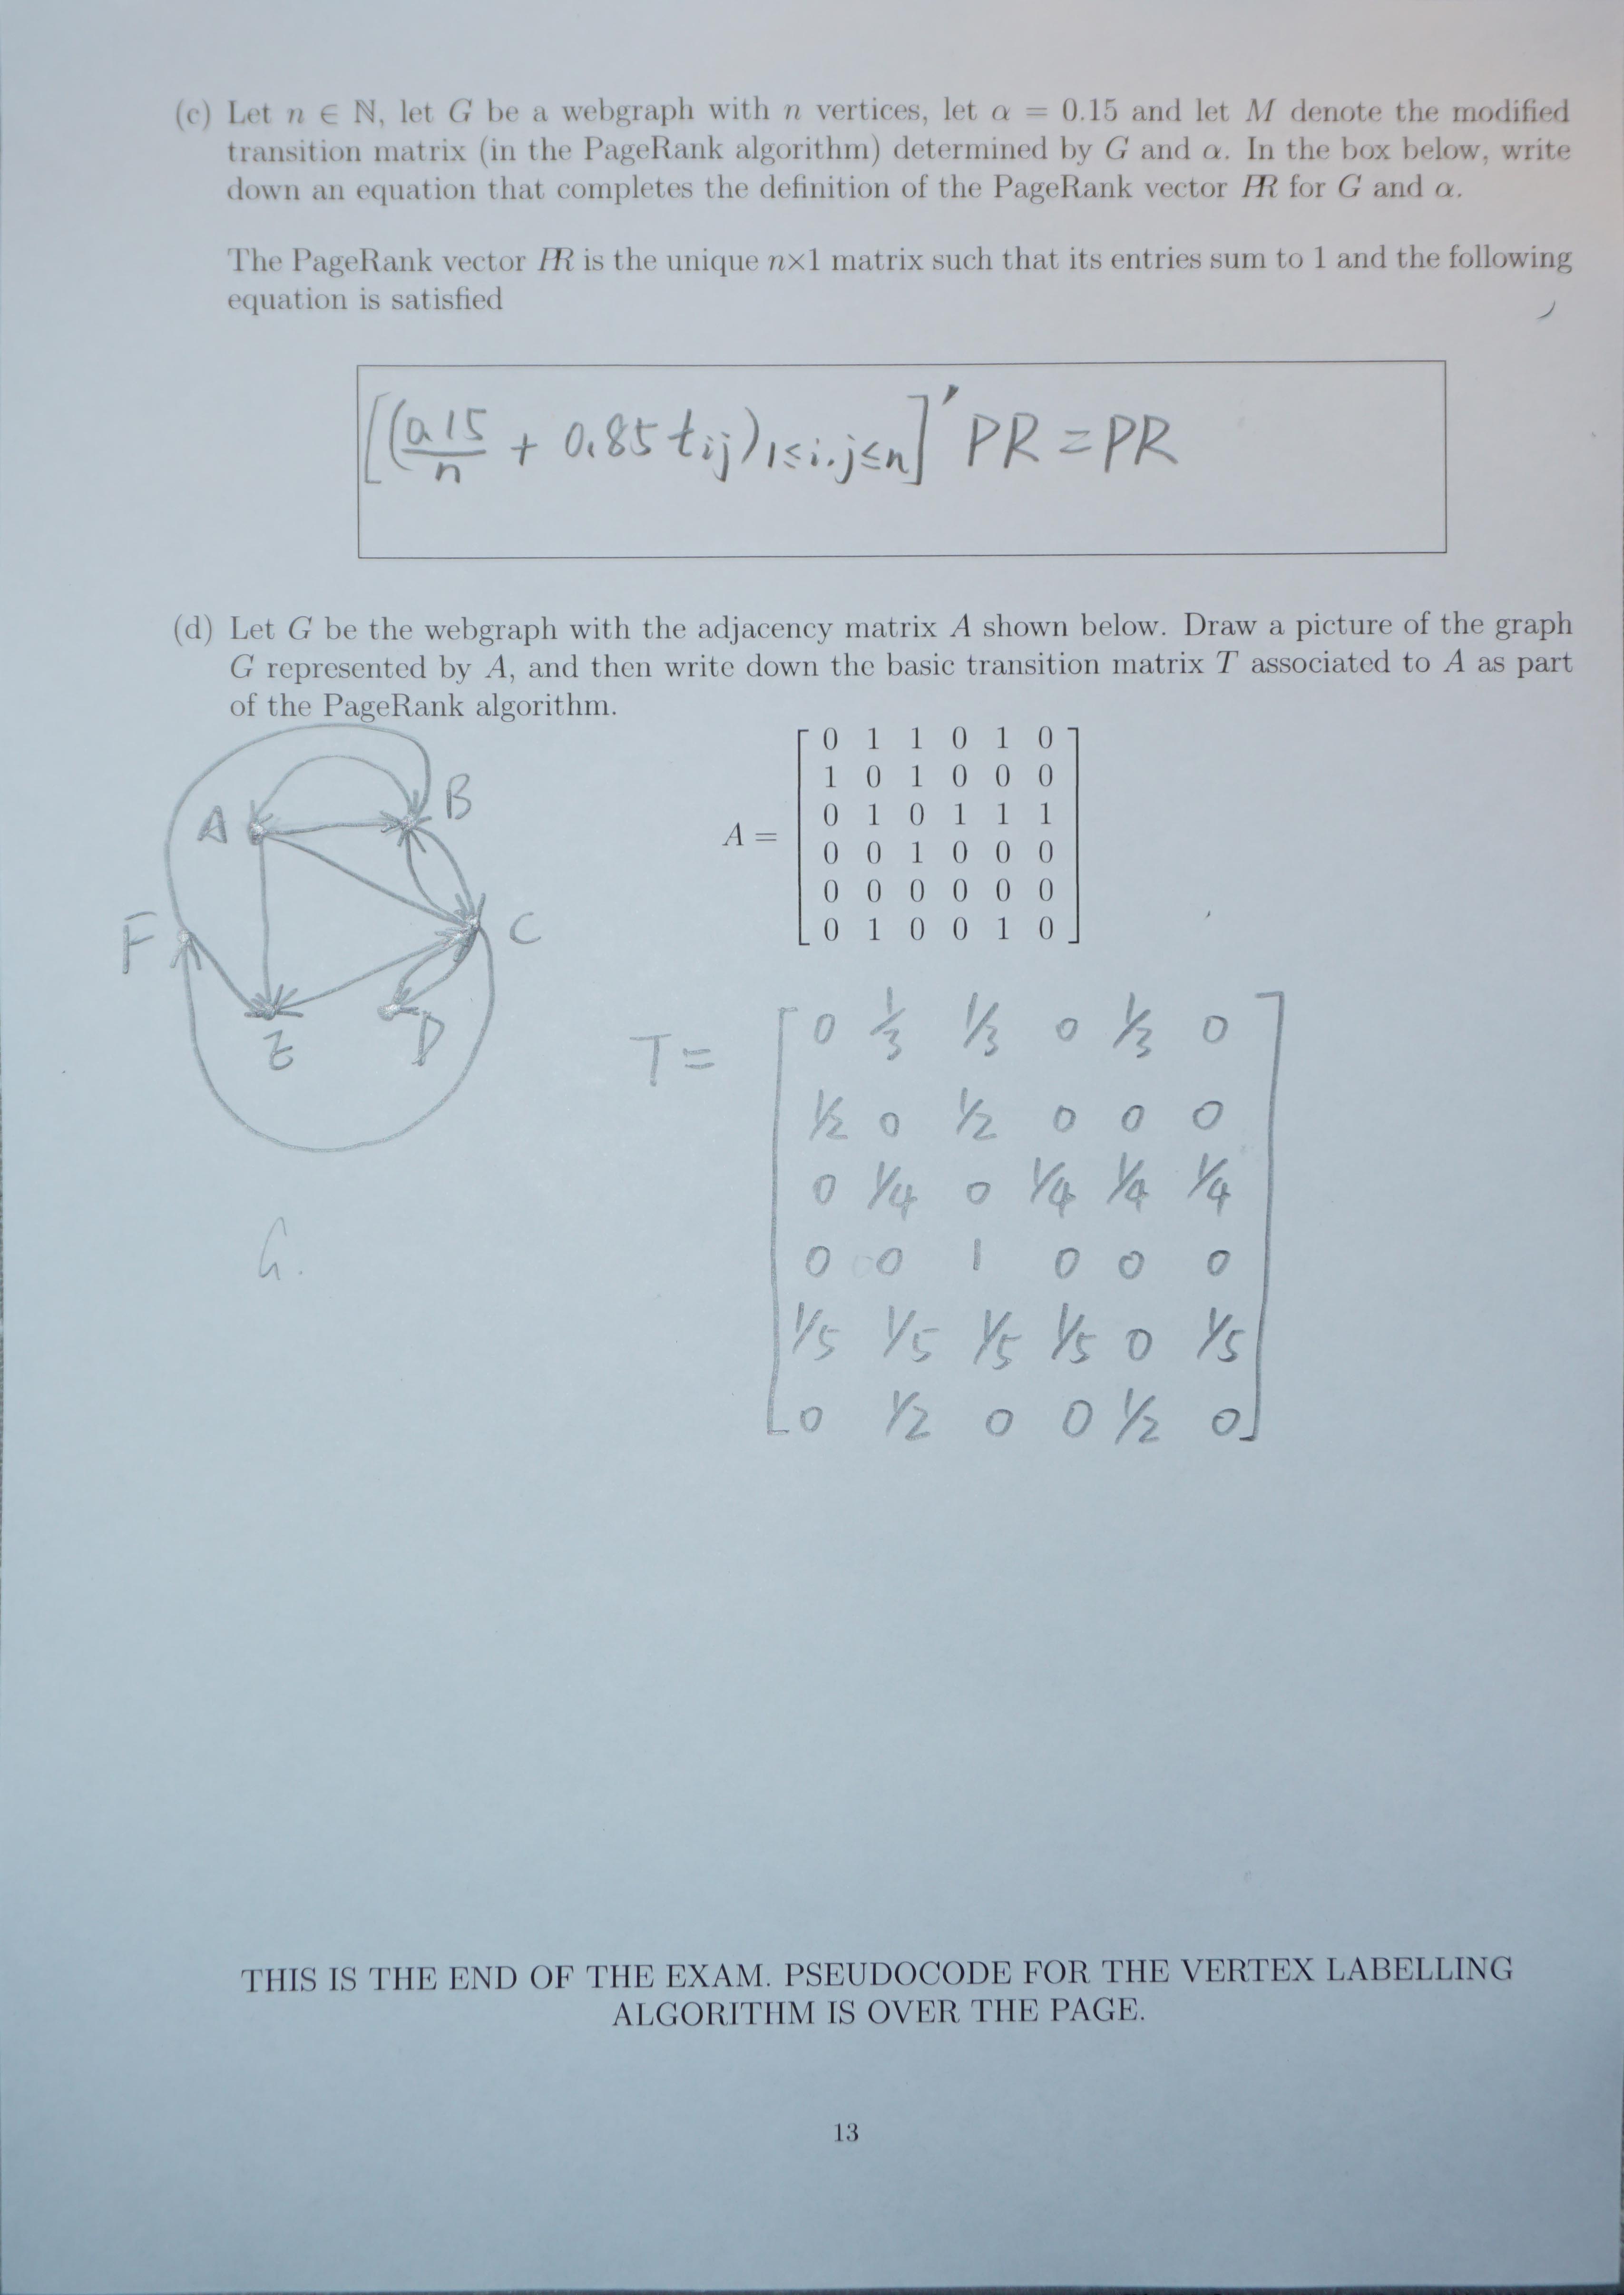 (c) Let n ∈ ℕ, let G be a webgraph with n vertices, let α = 0.15 and let M denote the modified
transition matrix (in the PageRank algorithm) determined by G and α. In the box below, write
down an equation that completes the definition of the PageRank vector PR for G and α.
The PageRank vector PR is the unique n×1 matrix such that its entries sum to 1 and the following
equation is satisfied
[(0.15/n + 0.85 tij)1≤i.j≤n]′ PR = PR
(d) Let G be the webgraph with the adjacency matrix A shown below. Draw a picture of the graph
G represented by A, and then write down the basic transition matrix T associated to A as part
of the PageRank algorithm.
A B C D E F
G.
A =
0 1 1 0 1 0
1 0 1 0 0 0
0 1 0 1 1 1
0 0 1 0 0 0
0 0 0 0 0 0
0 1 0 0 1 0
T =
0 1/3 1/3 0 1/3 0
1/2 0 1/2 0 0 0
0 1/4 0 1/4 1/4 1/4
0 0 1 0 0 0
1/5 1/5 1/5 1/5 0 1/5
0 1/2 0 0 1/2 0
THIS IS THE END OF THE EXAM. PSEUDOCODE FOR THE VERTEX LABELLING
ALGORITHM IS OVER THE PAGE.
13